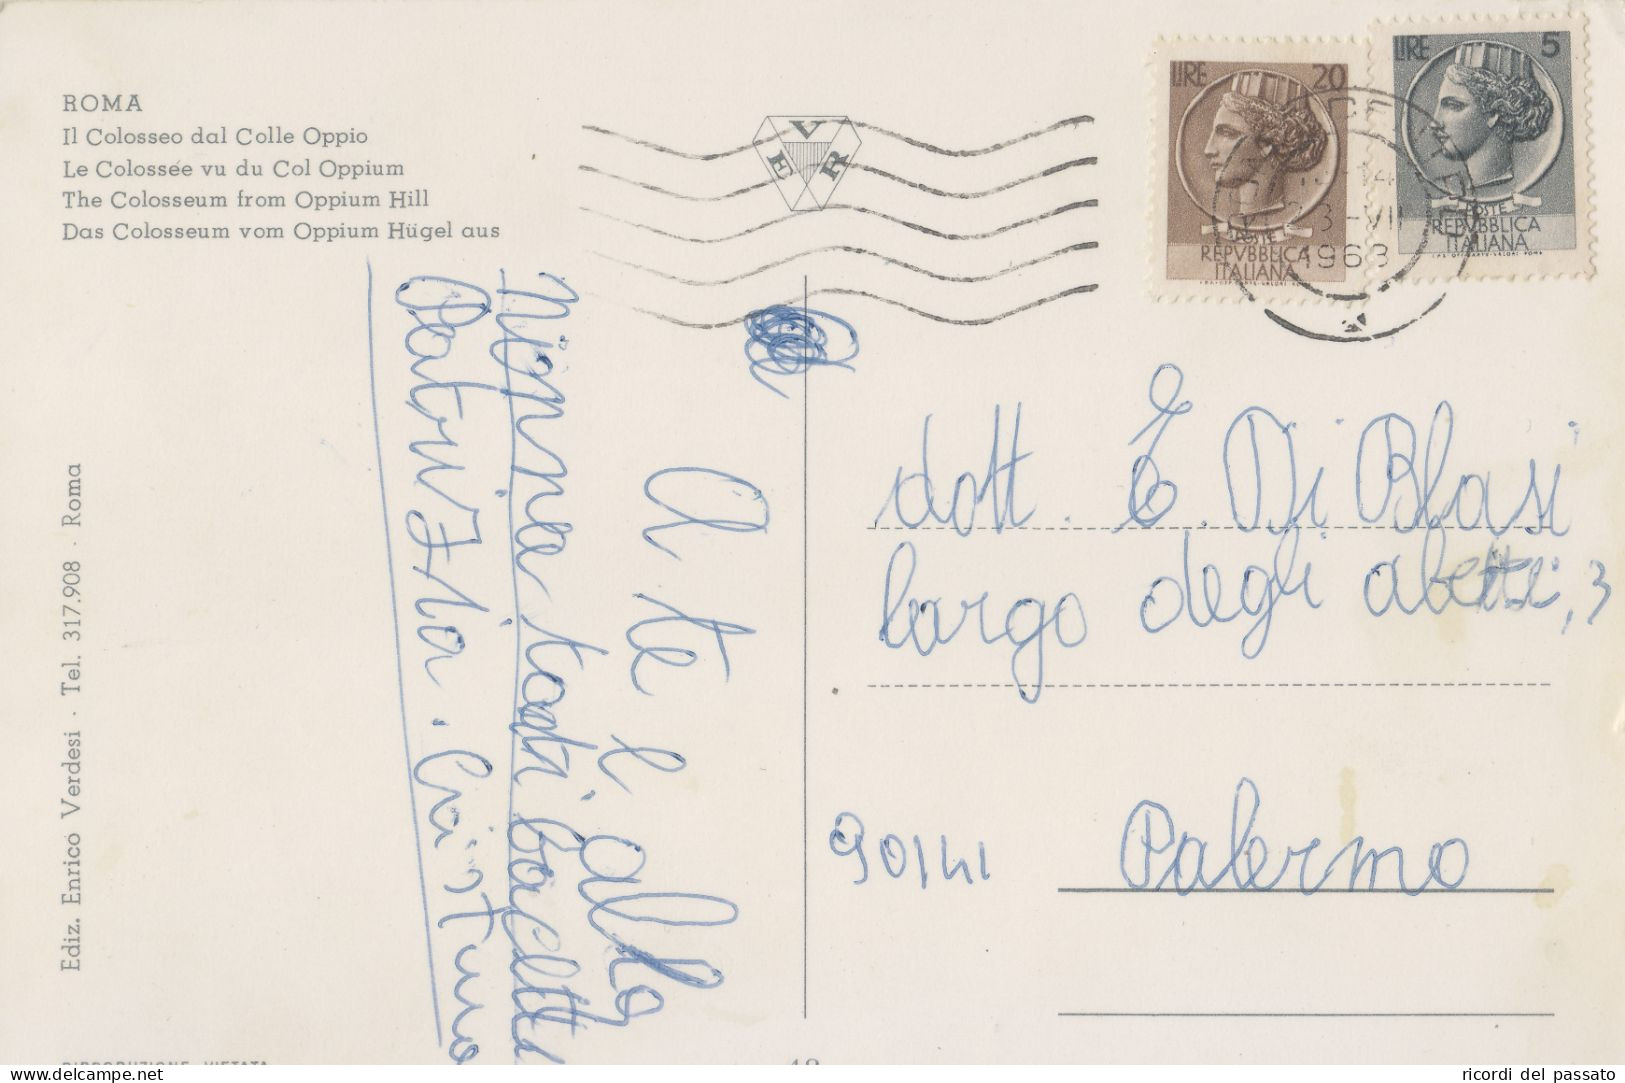 ROMA
Il Colosseo dal Colle Oppio
Le Colossée vu du Col Oppium
The Colosseum from Oppium Hill
Das Colosseum vom Oppium Hügel aus
Ediz. Enrico Verdesi · Tel. 317.908 · Roma
E V R
LIRE 20
POSTE
REPVBBLICA
ITALIANA
LIRE 5
POSTE
REPVBBLICA
ITALIANA
I.P.S. OFF. CARTE-VALORI ROMA
-VII
1968
A te e allo
tanti bacetti
Patrizia. Cristina
dott. E. Di Blasi
largo degli abeti, 3
90141 Palermo
RIPRODUZIONE VIETATA
ricordi del passato
delcampe.net